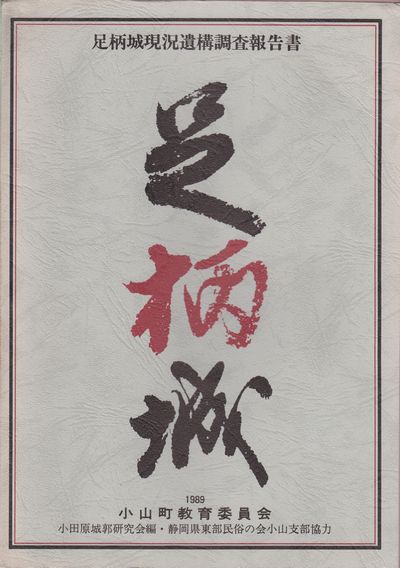 足柄城現況遺構調査報告書
足
柄
城
1989
小山町教育委員会
小田原城郭研究会編・静岡県東部民俗の会小山支部協力